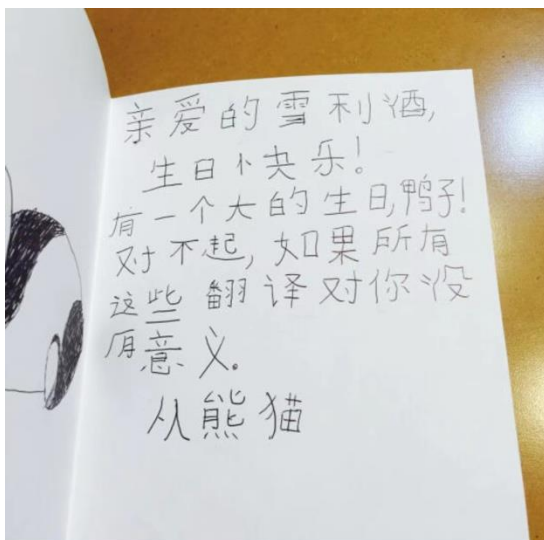 亲爱的雪利酒,
生日快乐!
有一个大的生日,鸭子!
对不起,如果所有
这些翻译对你没
有意义。
从熊猫